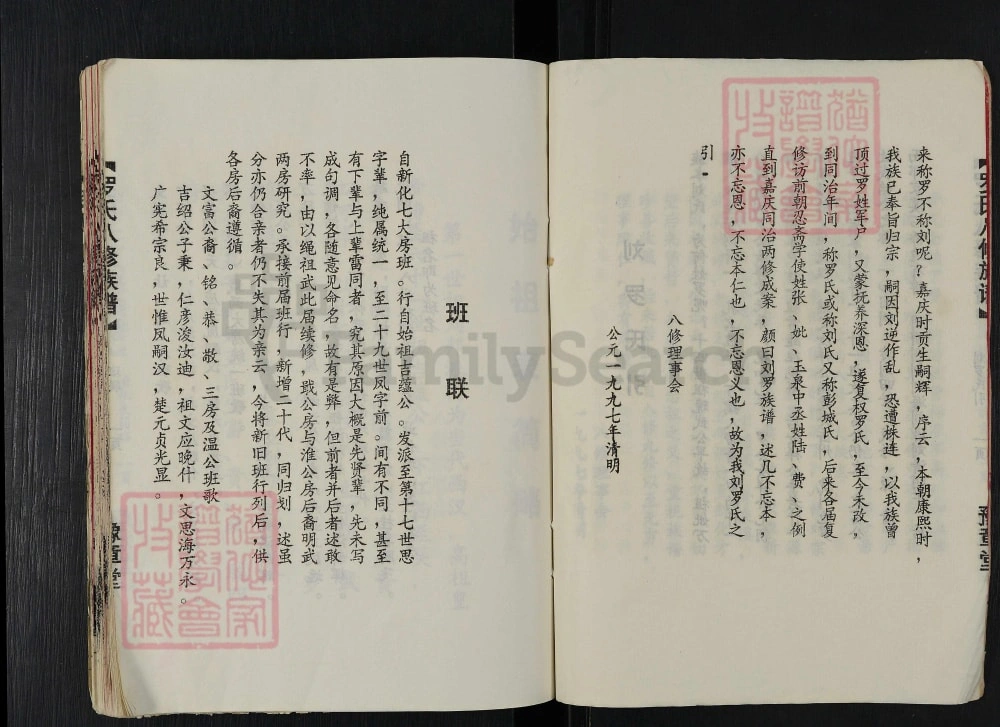 来称罗不称刘呢？嘉庆时贡生嗣辉，序云，本朝康熙时，
我族已奉旨归宗，嗣因刘逆作乱，恐遭株连，以我族曾
顶过罗姓军户，又蒙抚养深恩，遂复权罗氏，至今未改，
到同治年间，称罗氏或称刘氏又称彭城氏，后来各届复
修访前朝忍斋学使姓张、妣、玉泉中丞姓陆、费、之例
直到嘉庆同治两修成案，颜曰刘罗族谱，述几不忘本，
亦不忘恩，不忘本仁也，不忘恩义也，故为我刘罗氏之
引。
八修理事会
公元一九九七年清明
班联
自新化七大房班。行自始祖吉蕴公。发派至第十七世思
字辈，纯属统一，至二十九世凤字前。间有不同，甚至
有下辈与上辈雷同者，究其原因大概是先贤辈，先未写
成句调，各随意见命名，故有是弊，但前者并后者述敢
不率，由以绳祖武此届续修，戢公房与淮公房后裔明武
两房研究。承接前届班行，新增二十代，同归划，述虽
分亦仍合亲者仍不失其为亲云，今将新旧班行列后，供
各房后裔遵循。
文富公裔、铭、恭、敬、三房及温公班歌
吉绍公子秉，仁彦浚汝迪，祖文应晚什，文思海万永。
广宪希宗良，世惟凤嗣汉，楚元贞光显。
【罗氏八修族谱】
豫章堂